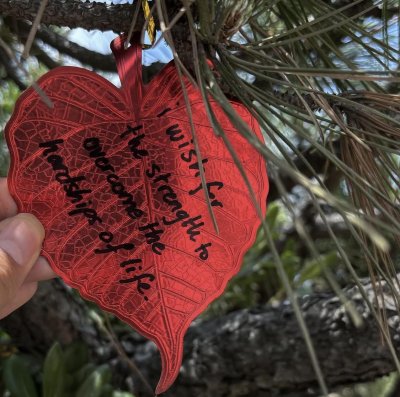 i wish for
the strength to
overcome the
hardships of life.